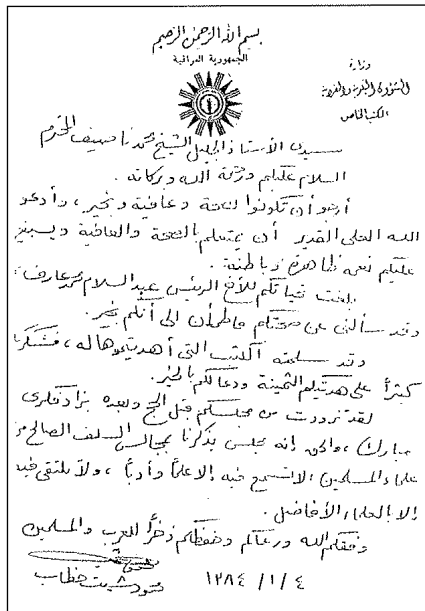 بسم الله الرحمن الرحيم
الجمهورية العراقية
وزارة
الشؤون البلدية والقروية
المكتب الخاص
سيدي الأستاذ الجليل الشيخ محمد نصيف المحترم
السلام عليكم ورحمة الله وبركاته .
أرجو أن تكونوا بصحة وعافية وبخير ، وأدعو
الله العلي القدير أن يمتعكم بالصحة والعافية ويسبغ
عليكم نعمه ظاهرة وباطنة .
بلغت تحياتكم للأخ الرئيس عبد السلام محمد عارف
وقد سألني عن صحتكم فاطمأن الى أنكم بخير .
وقد سلمته الكتب التي أهديتموها له ، فشكركم
كثيراً على هديتكم الثمينة ودعا لكم بالخير .
لقد تزودت من مجلسكم قبل الحج وبعده بزاد فكري
مبارك ، والحق إنه مجلس يذكرنا بمجالس السلف الصالح من
علماء المسلمين الا تسمع فيه إلا علماً وأدباً ، ولا تلتقي فيه
إلا بالعلماء الأفاضل .
وفقكم الله ورعاكم وحفظكم ذخراً للعرب والمسلمين
محمود شيت خطاب
٤ / ١ / ١٣٨٤